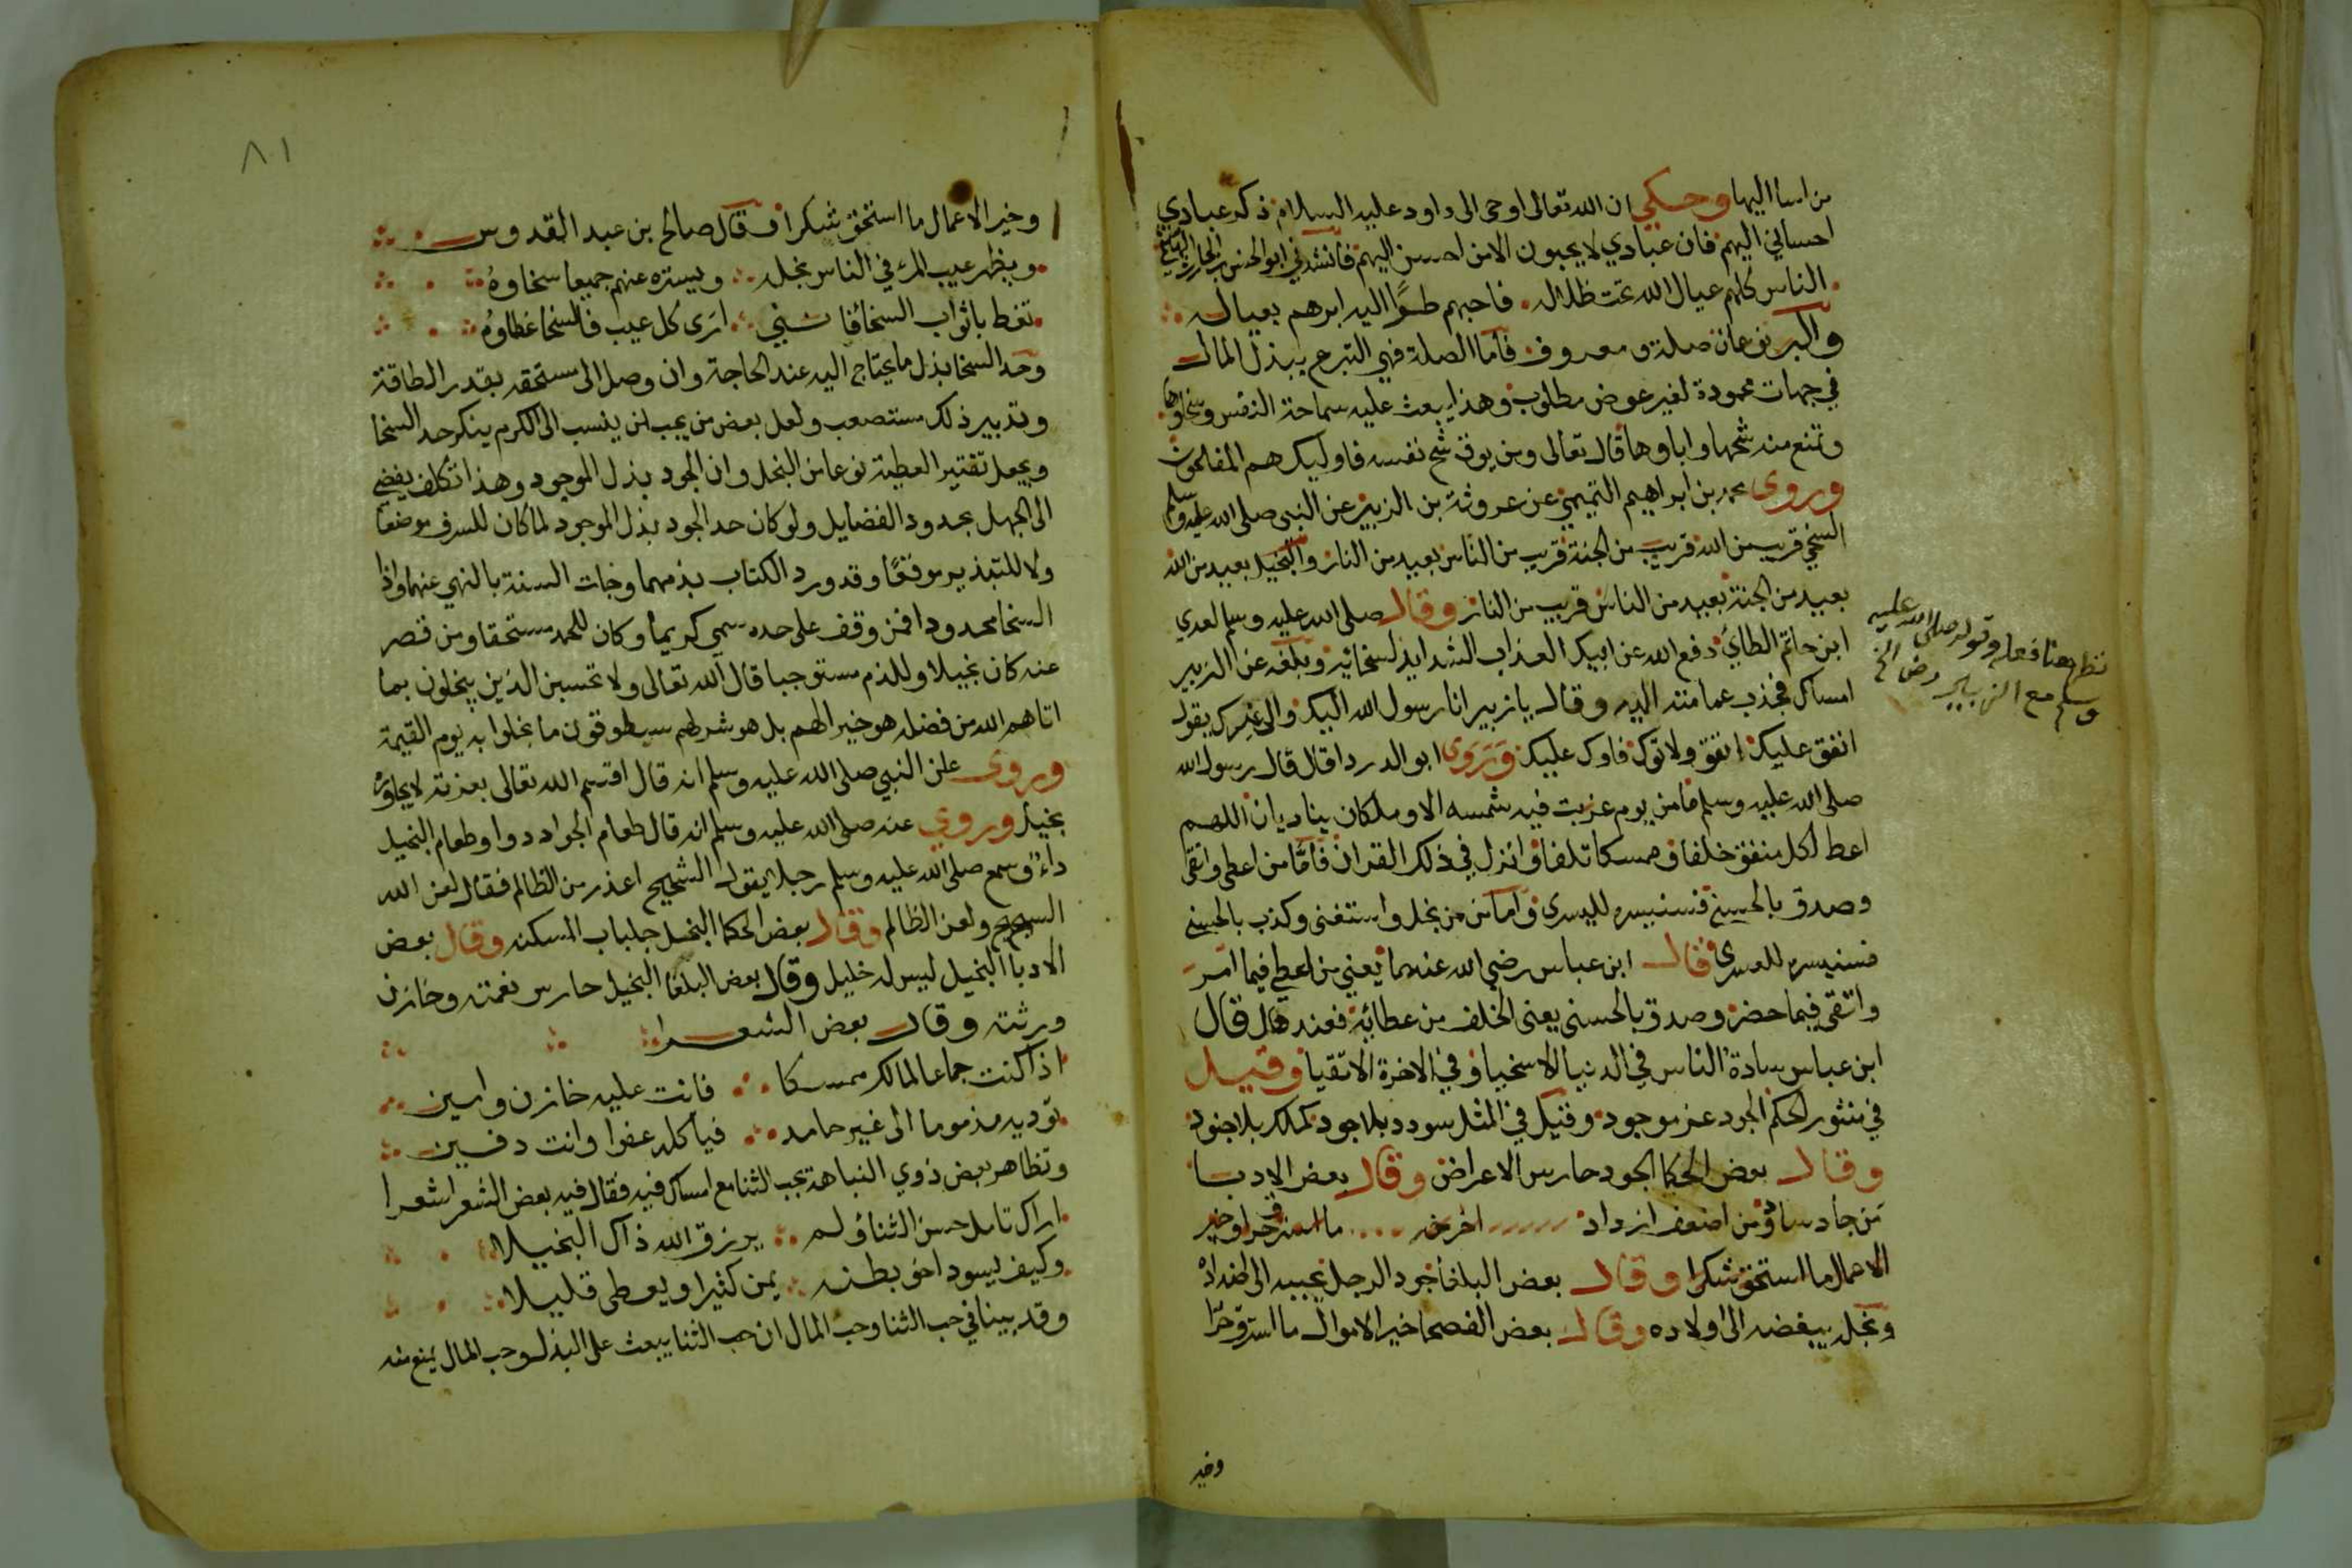 من اسا اليها وحكي ان الله تعالى اوحى الى داود عليه السلام ذكر عبادي
احساني اليهم فان عبادي لا يحبون الا من احسن اليهم فانشدني ابو الحسن بن الحارث الهاشمي
الناس كلهم عيال الله تحت ظلاله فاحبهم طرًّا اليه ابرهم بعياله
والبر نوعان صلة ومعروف فاما الصلة فهي التبرع ببذل المال
في جهات محمودة لغير عوض مطلوب وهذا يبعث عليه سماحة النفس وسخاوها
وتمنع منه شحها واباوها قال تعالى ومن يوق شح نفسه فاوليك هم المفلحون
وروى محمد بن ابراهيم التيمي عن عروة بن الزبير عن النبي صلى الله عليه وسلم
السخي قريب من الله قريب من الجنة قريب من الناس بعيد من النار والبخيل بعيد من الله
بعيد من الجنة بعيد من الناس قريب من النار وقال صلى الله عليه وسلم لعدي
ابن حاتم الطائي دفع الله عن ابيك العذاب الشديد لسخائه وبلغه عن الزبير
امساك فجذب عمامته اليه وقال يا زبير انا رسول الله اليك والى غيرك يقول
انفق عليك انفق ولا توك فاوك عليك وَرَوى ابو الدردا قال قال رسول الله
صلى الله عليه وسلم ما من يوم غربت فيه شمسه الا وملكان يناديان اللهم
اعط لكل منفق خلفا وممسكا تلفا وانزل في ذلك القران فاما من اعطى واتقى
وصدق بالحسنى فسنيسره لليسرى واما من بخل واستغنى وكذب بالحسنى
فسنيسره للعسرى فقال ابن عباس رضي الله عنهما يعني من اعطى فيما امر
واتقى فيما حضر وصدق بالحسنى يعنى الخلف من عطائه فعند قال
ابن عباس سادة الناس في الدنيا الاسخيا وفي الاخرة الاتقيا وقيل
في منثور الحكم الجود عز موجود وقيل في المثل سودد بلا جود كملك بلا جنود
وقال بعض الحكما الجود حارس الاعراض وقال بعض الادبا
من جاد ساد ومن اضعف ازداد اخر خير ما استرق حرا وخير
الاعمال ما استحق شكرا وقال بعض البلغا جود الرجل يحببه الى اضداده
وبخله يبغضه الى اولاده وقال بعض الفصحا خير الاموال ما استرق حرا
وخير
تظر معنا فعله وقوله صلى الله عليه
وسلم مع الزبير رض الخ
٨١
وخير الاعمال ما استحق شكرا وقال صالح بن عبد القدوس
ويظهر عيب المرء في الناس بخله ويستره عنهم جميعا سخاوه
تغط باثواب السخا فانني ارى كل عيب فالسخا غطاوه
وحد السخا بذل ما يحتاج اليه عند الحاجة وان وصل الى مستحقه بقدر الطاقة
وتدبير ذلك مستصعب ولعل بعض من يحب ان ينسب الى الكرم ينكر حد السخا
ويجعل تقتير العطية نوعا من البخل وان الجود بذل الموجود وهذا تكلف يفضي
الى الجهل بحدود الفضايل ولو كان حد الجود بذل الموجود لما كان للسرف موضعا
ولا للتبذير موقعًا وقد ورد الكتاب بذمهما وجات السنة بالنهي عنهما واذا
السخا محدودا فمن وقف على حده سمي كريما وكان للحمد مستحقا ومن قصر
عنه كان بخيلا وللذم مستوجبا قال الله تعالى ولا تحسبن الذين يبخلون بما
اتاهم الله من فضله هو خيرا لهم بل هو شر لهم سيطوقون ما بخلوا به يوم القيمة
وروى عن النبي صلى الله عليه وسلم انه قال اقسم الله تعالى بعزته لا يجاوره
بخيل وروي عنه صلى الله عليه وسلم انه قال طعام الجواد دوا وطعام البخيل
داء وسمع صلى الله عليه وسلم رجلا يقول الشحيح اعذر من الظالم فقال لعن الله
الشحيح ولعن الظالم وقال بعض الحكما البخل جلباب المسكنه وقال بعض
الادبا البخيل ليس له خليل وقال بعض البلغا البخيل حارس نعمته وخازن
ورثته وقال بعض الشعرا
اذا كنت جماعا لمالك ممسكا فانت عليه خازن وامين
توديه مذموما الى غير حامد فياكله عفوا وانت دفين
وتظاهر بعض ذوي النباهة بحب الثنا مع امساك فيه فقال فيه بعض الشعرا شعرا
اراك تامل حسن الثنا ولم يرزق الله ذاك البخيلا
وكيف يسود اخو بطنه يمن كثيرا ويعطى قليلا
وقد بينا في حب الثنا وحب المال ان حب الثنا يبعث على البذل وحب المال يمنع منه